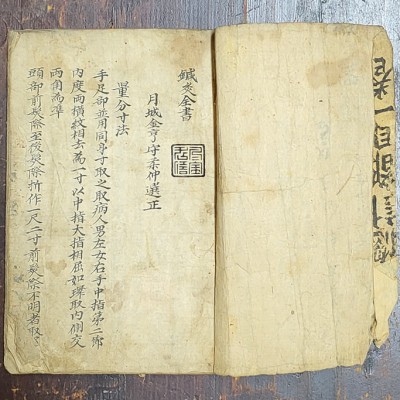 鍼灸全書
月城金亨守柔仲選正
量分寸法
手足部並用同身寸取之取病人男左女右手中指第二節
內度兩橫紋相去為一寸以中指大指相屈如環取內側交
兩角為準
頭部前髮際至後髮際折作一尺二寸前髮際不明者取
一卷